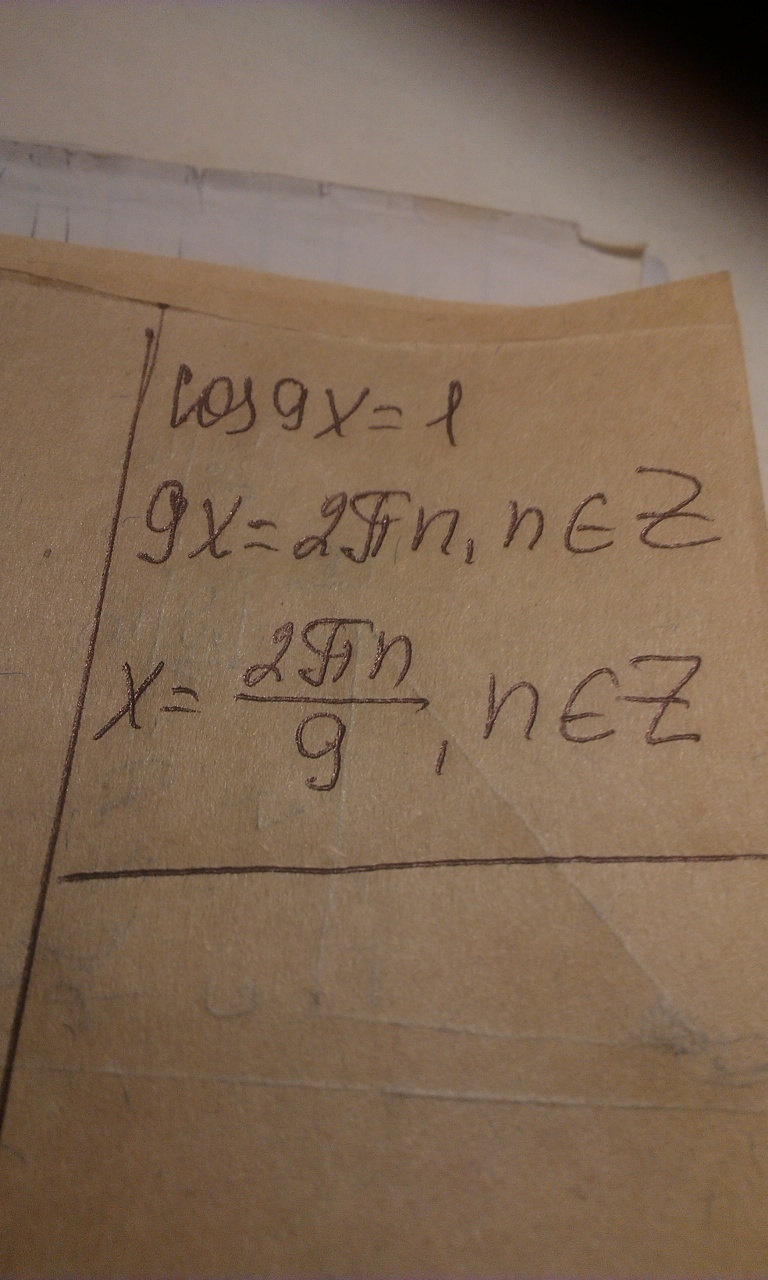 cos 9x = 1
9x = 2πn, n ∈ Z
x = 2πn/9, n ∈ Z